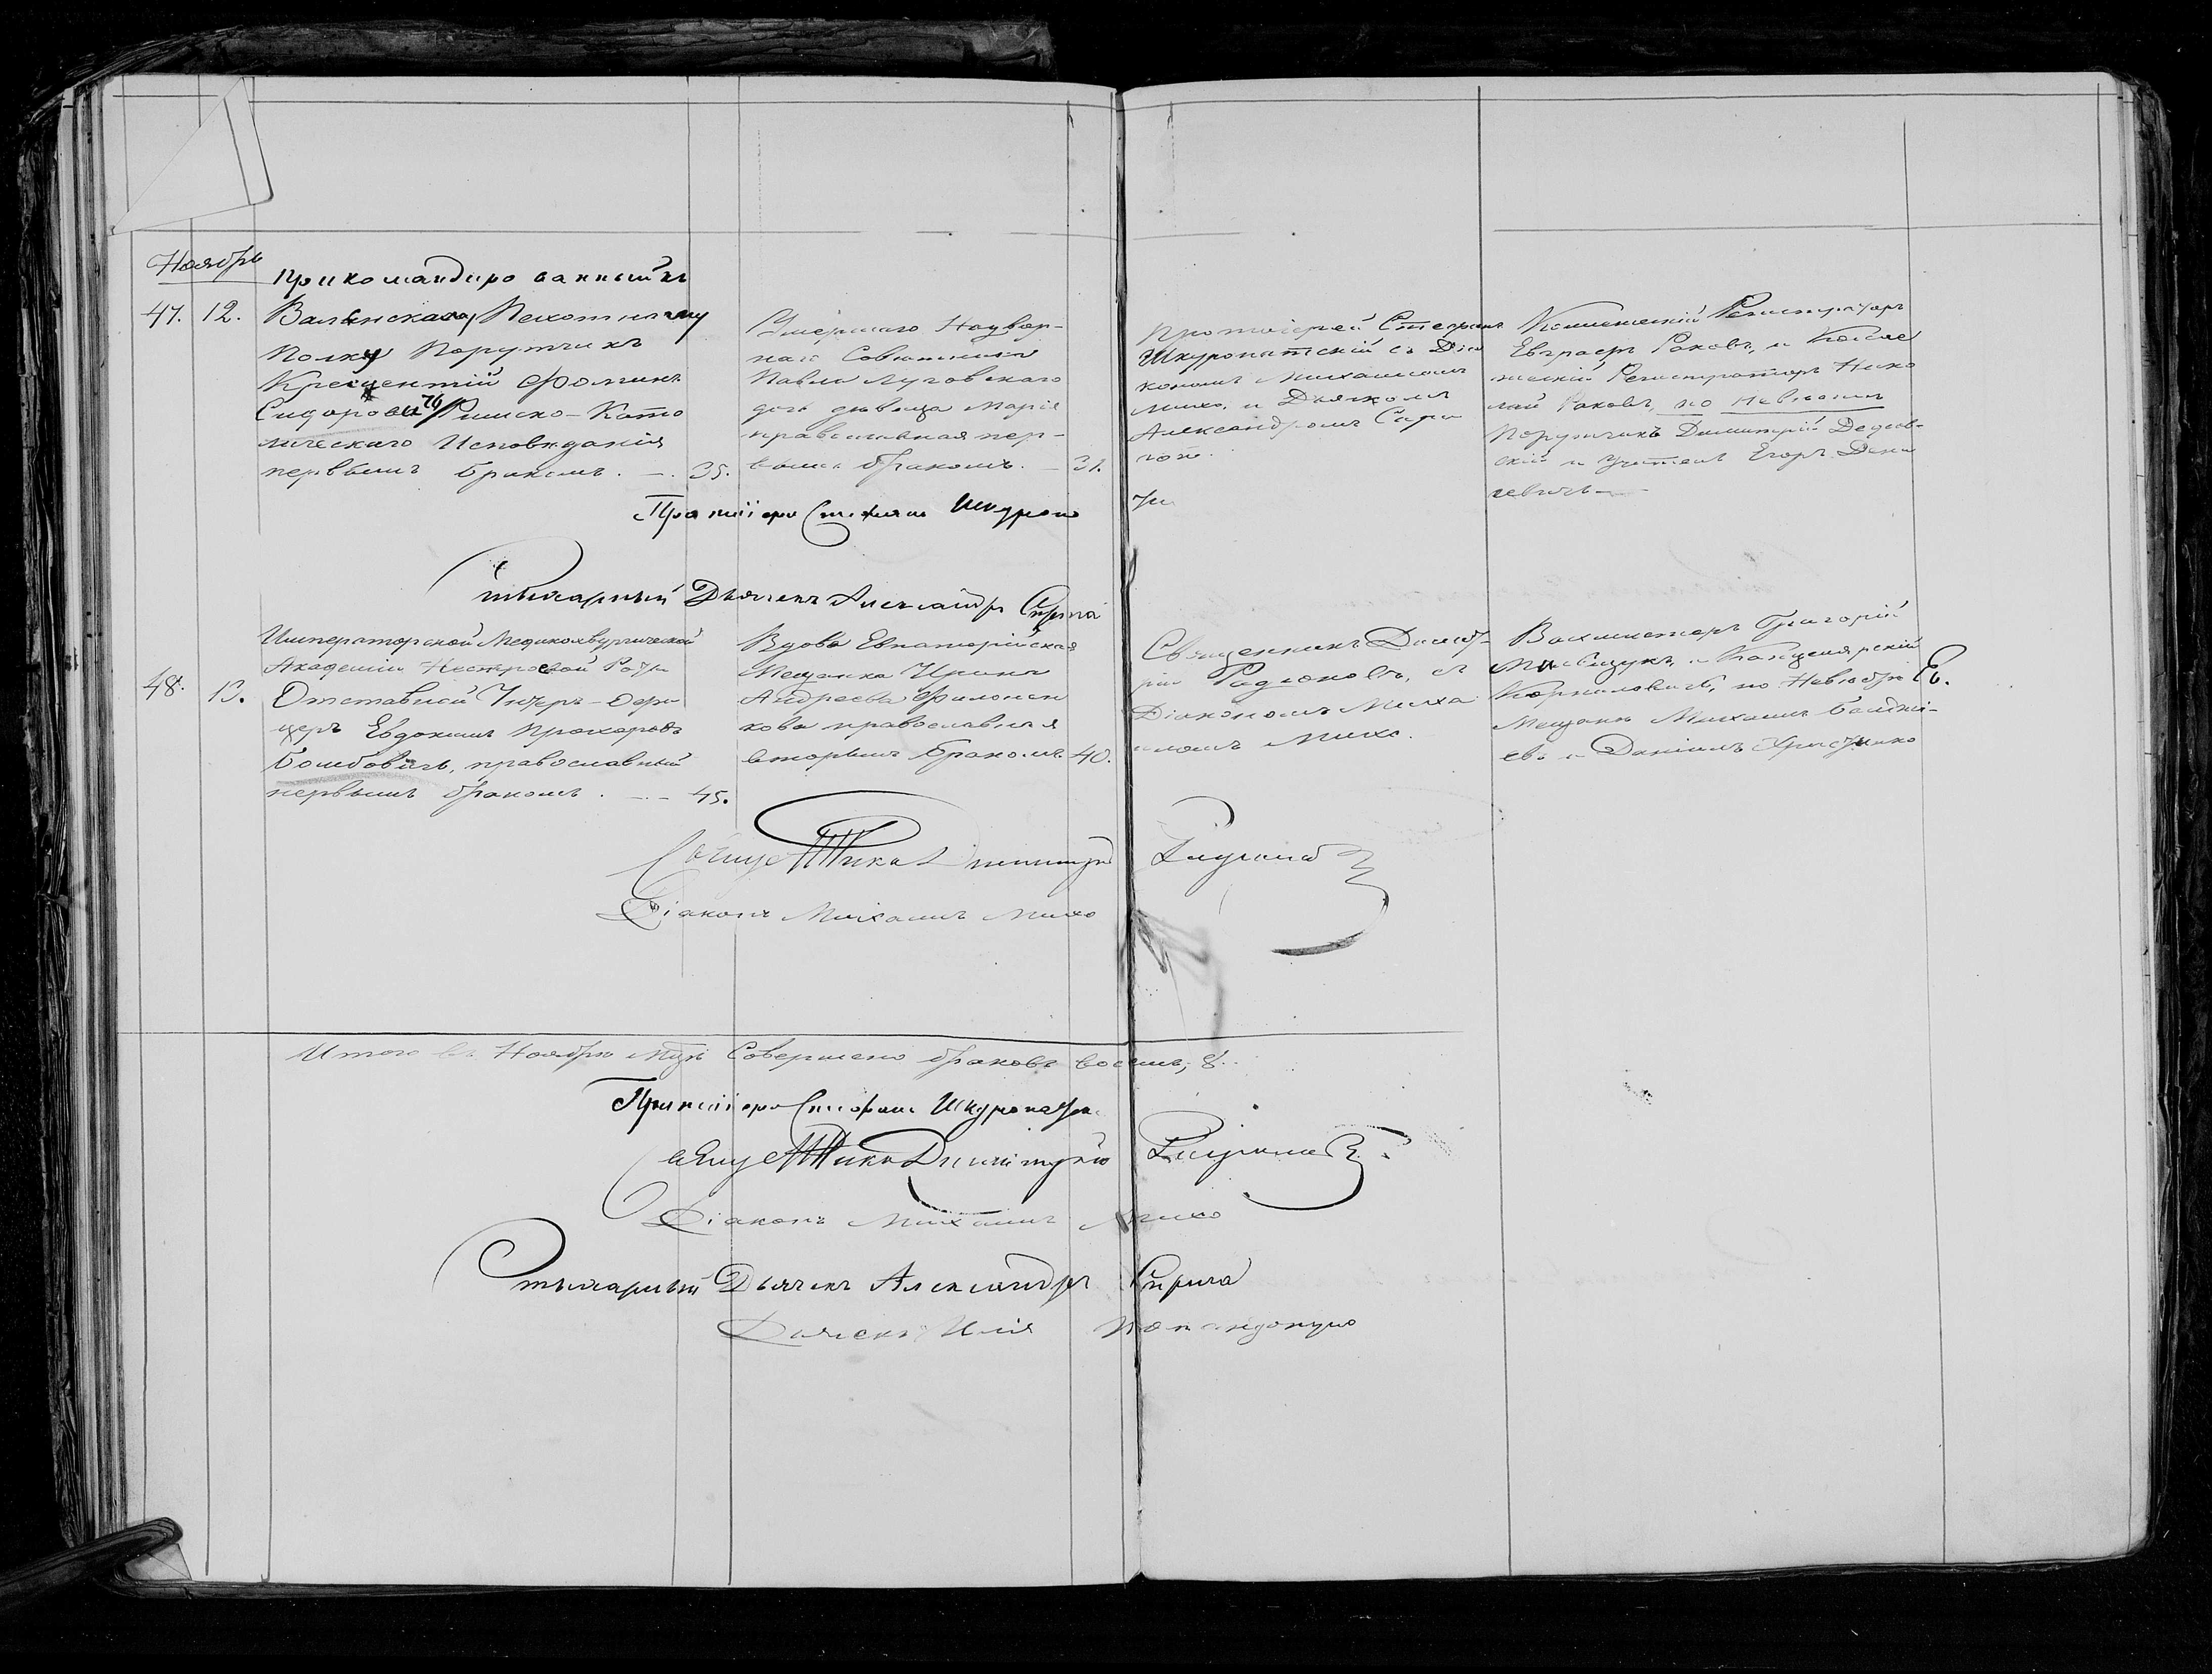 Ноябрь
Прикомандированный къ
47. 12. Валынскому Пехотному
Полку Порутчикъ
Крещентій Фоминъ
Сидорович Римско-Като
лическаго Исповѣданія
первымъ бракомъ. — 35.
Умершаго Надвор-
наго Совѣтника
Павла Луговскаго
дочь дѣвица Марія
православная пер-
вымъ бракомъ. — 31.
Протоіерей Стефанъ
Шкуропатскій съ Діа
кономъ Михаиломъ
Михо, и Дьячкомъ
Александромъ Спри
Коллежскій Регистраторъ
Евграфъ Раковъ, и Колле
жскій Регистраторъ Нико
лай Раковъ, по невѣстѣ
Порутчикъ Димитрій
скій и Учитель Егоръ Дени
севичъ
Протоіерей Стефанъ Шкуропа
Стихарный Дьячекъ Александръ Сприга
48. 13. Императорской Медикохирургической
Академіи Роты
Отставной Унтеръ-Офи
церъ Евдокимъ Прохоровъ
Бомбовичъ, православный
первымъ бракомъ. — 45.
Вдова Евпаторійская
Мещанка Ирина
Андреева Филонен
кова православная
вторымъ бракомъ. 40.
Священникъ Димит-
рій Родіоновъ, съ
Діакономъ Миха
иломъ Михо.
Вахмистеръ Григорій
и Канцелярскій
Корниловичъ, по Невѣстѣ Ев.
Мещане Михаилъ
евъ и Даніилъ
Священникъ Димитрій Родіоновъ
Діаконъ Михаилъ Михо
Итого въ Ноябрѣ Мцѣ Совершено браковъ восемь, 8.
Протоіерей Стефанъ Шкуропат
Священникъ Димитрій Родіоновъ
Діаконъ Михаилъ Михо
Стихарный Дьячекъ Александръ Сприга
Дьячекъ Илія